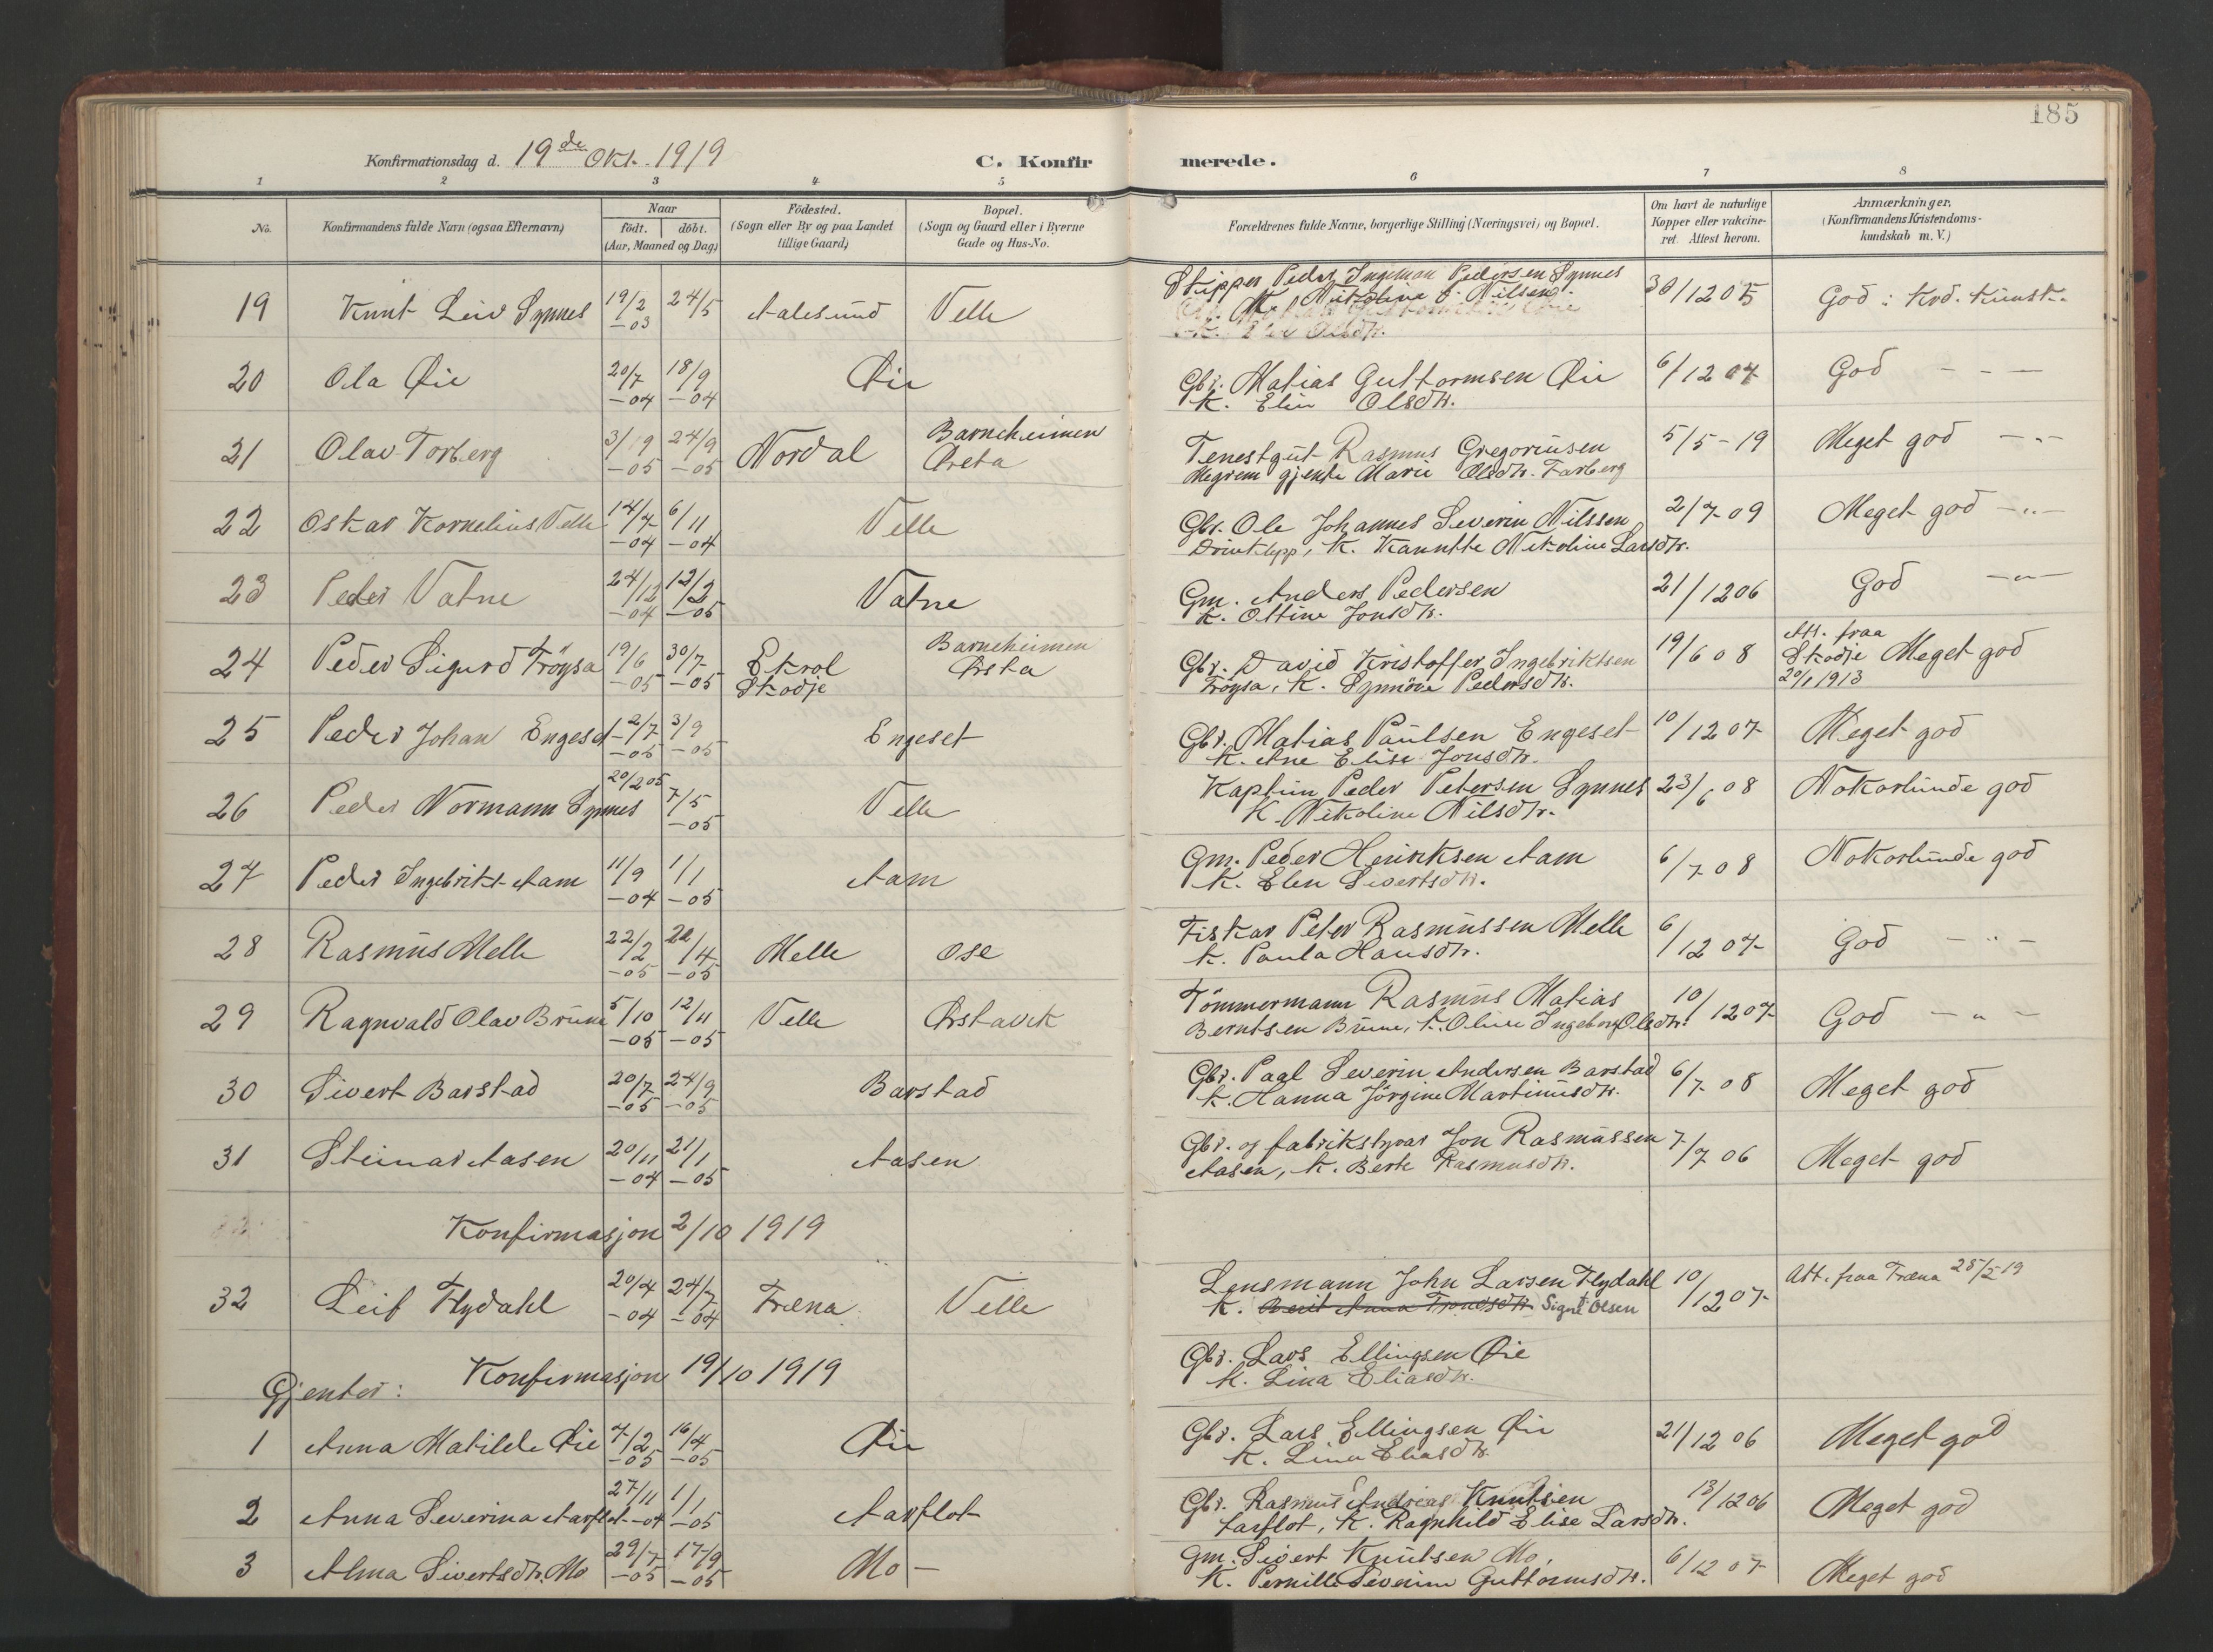 185
Konfirmationsdag d. 19de Okt. 1919
C. Konfirmerede.
1 2 3 4 5 6 7 8
No.
Konfirmandens fulde Navn (ogsaa Efternavn)
Naar
født. døbt.
(Aar, Maaned og Dag)
Födested.
(Sogn eller By og paa Landet
tillige Gaard)
Bopæl.
(Sogn og Gaard eller i Byerne
Gade og Hus-No.
Forældrenes fulde Navne, borgerlige Stilling (Næringsvei) og Bopæl.
Om havt de naturlige
Kopper eller vakcine-
ret. Attest herom.
Anmærkninger.
(Konfirmandens Kristendoms-
kundskab m. V.)
19 Knut Leiv Synnes 19/2 -03 24/5 Aalesund Velle Skipper Peder Ingeman Pedersen Synnes
K. Nikoline J. Nilsen. 30/12 05 God: Krd. kunst.
K. Elin Olsdtr.
20 Ola Øie 20/7 -04 18/9 -04 Øie Gbr. Matias Guttormsen Øie 6/12 07 God - - -
K. Elin Olsdtr.
21 Olav Torberg 3/19 -05 24/9 -05 Nordal Barneheimen Ørsta Tenestgut Rasmus Gregoriusen 5/5-19 Meget god -"-
gjente Marie Olsdtr. Farberg
22 Oskar Kornelius Velle 14/7 -04 6/11 -04 Velle Gbr. Ole Johannes Severin Nilssen 2/7-09 Meget god -"-
K. Nikoline Larsdtr.
23 Peder Vatne 24/12 -04 12/2 -05 Vatne Gm. Anders Pedersen 21/12 06 God -"-
K. Oltine Jonsdtr.
24 Peder Sigurd Trøysa 19/6 -05 30/7 -05 Ekrol Skodje Barneheimen Ørsta Gbr. David Kristoffer Ingebriktsen 19/6 08 Att. fraa Skodje 20/1 1913 Meget god
Trøysa, K. Synnøve Pedersdtr.
25 Peder Johan Engeset 2/7 -05 3/9 -05 Engeset Gbr. Matias Paulsen Engeset 10/12 07 Meget god
K. Ane Elise Jonsdtr.
26 Peder Normann Synnes 20/2 05 7/5 -05 Velle Kaptein Peder Petersen Synnes 23/6 08 Nokorlunde god
K. Nikoline Nilsdtr.
27 Peder Ingebrikt Aam 11/9 -04 1/1 -05 Aam Gm. Peder Henriksen Aam 6/7 08 Nokorlunde god
K. Elen Sivertsdtr.
28 Rasmus Melle 22/2 -05 /4 -05 Melle Ose Fiskar Peter Rasmussen Melle 6/12 07 God -"-
K. Paula Hansdtr.
29 Ragnvald Olav Brune 5/10 -05 12/11 -05 Velle Ørstavik Tømmermann Rasmus Matias 10/12 07 God -"-
Berntsen Brune, K. Oline Ingeborg Olsdtr.
30 Sivert Barstad 20/7 -05 24/9 -05 Barstad Gbr. Paal Severin Andersen Barstad 6/7 08 Meget god
K. Hanna Jørgine Martinusdtr.
31 Steinar Aasen 20/11 -04 21/1 -05 Aasen Gbr. og fabrikstyrar Jon Rasmussen 7/7 06 Meget god
Aasen, K. Berte Rasmusdtr.
Konfirmasjon 2/10 1919
32 Leif Flydahl 20/4 -04 24/7 -04 Fræna Velle Lensmann John Larsen Flydahl 10/12 07 Att. fraa Fræna 25/5 19
K. Berit Anna Trondsdtr. Signe Olsen
Gbr. Lars Ellingsen Øie
K. Lina Eliasdtr.
Gjenter: Konfirmasjon 19/10 1919
1 Anna Matilde Øie 7/2 -05 16/4 -05 Øie Gbr. Lars Ellingsen Øie 21/12 06 Meget god
K. Lina Eliasdtr.
2 Anna Severina Aarflot 27/11 -04 1/1 -05 Aarflot Gbr. Rasmus Andreas Knutsen 13/12 06 Meget god
Aarflot, K. Ragnhild Elise Larsdtr.
3 Alma Sivertsdtr. Mo 29/7 -05 17/9 -05 Mo - Gm. Sivert Knutsen Mo, 6/12 07 Meget god
K. Pernille Severine Guttormsdtr.